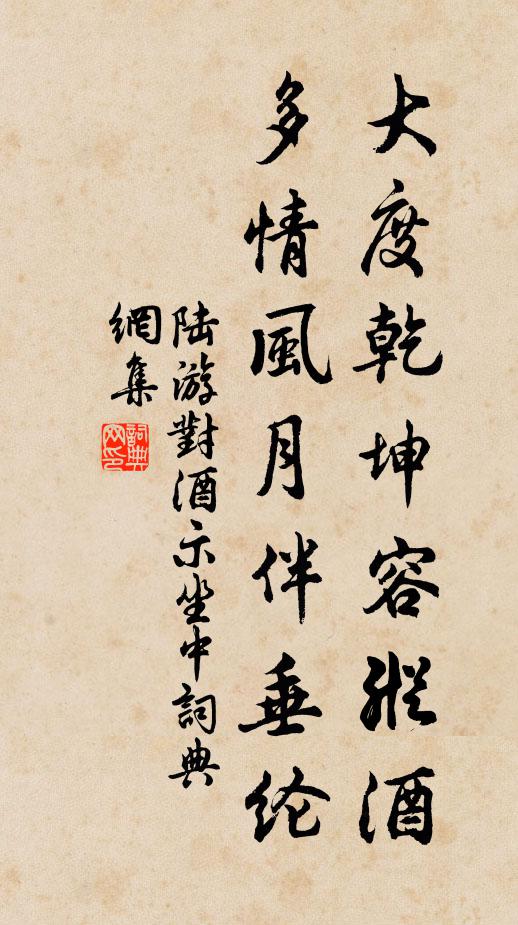 大度乾坤容縱酒
多情風月伴垂纶
陆游對酒示坐中詞典
網集
詞典網印